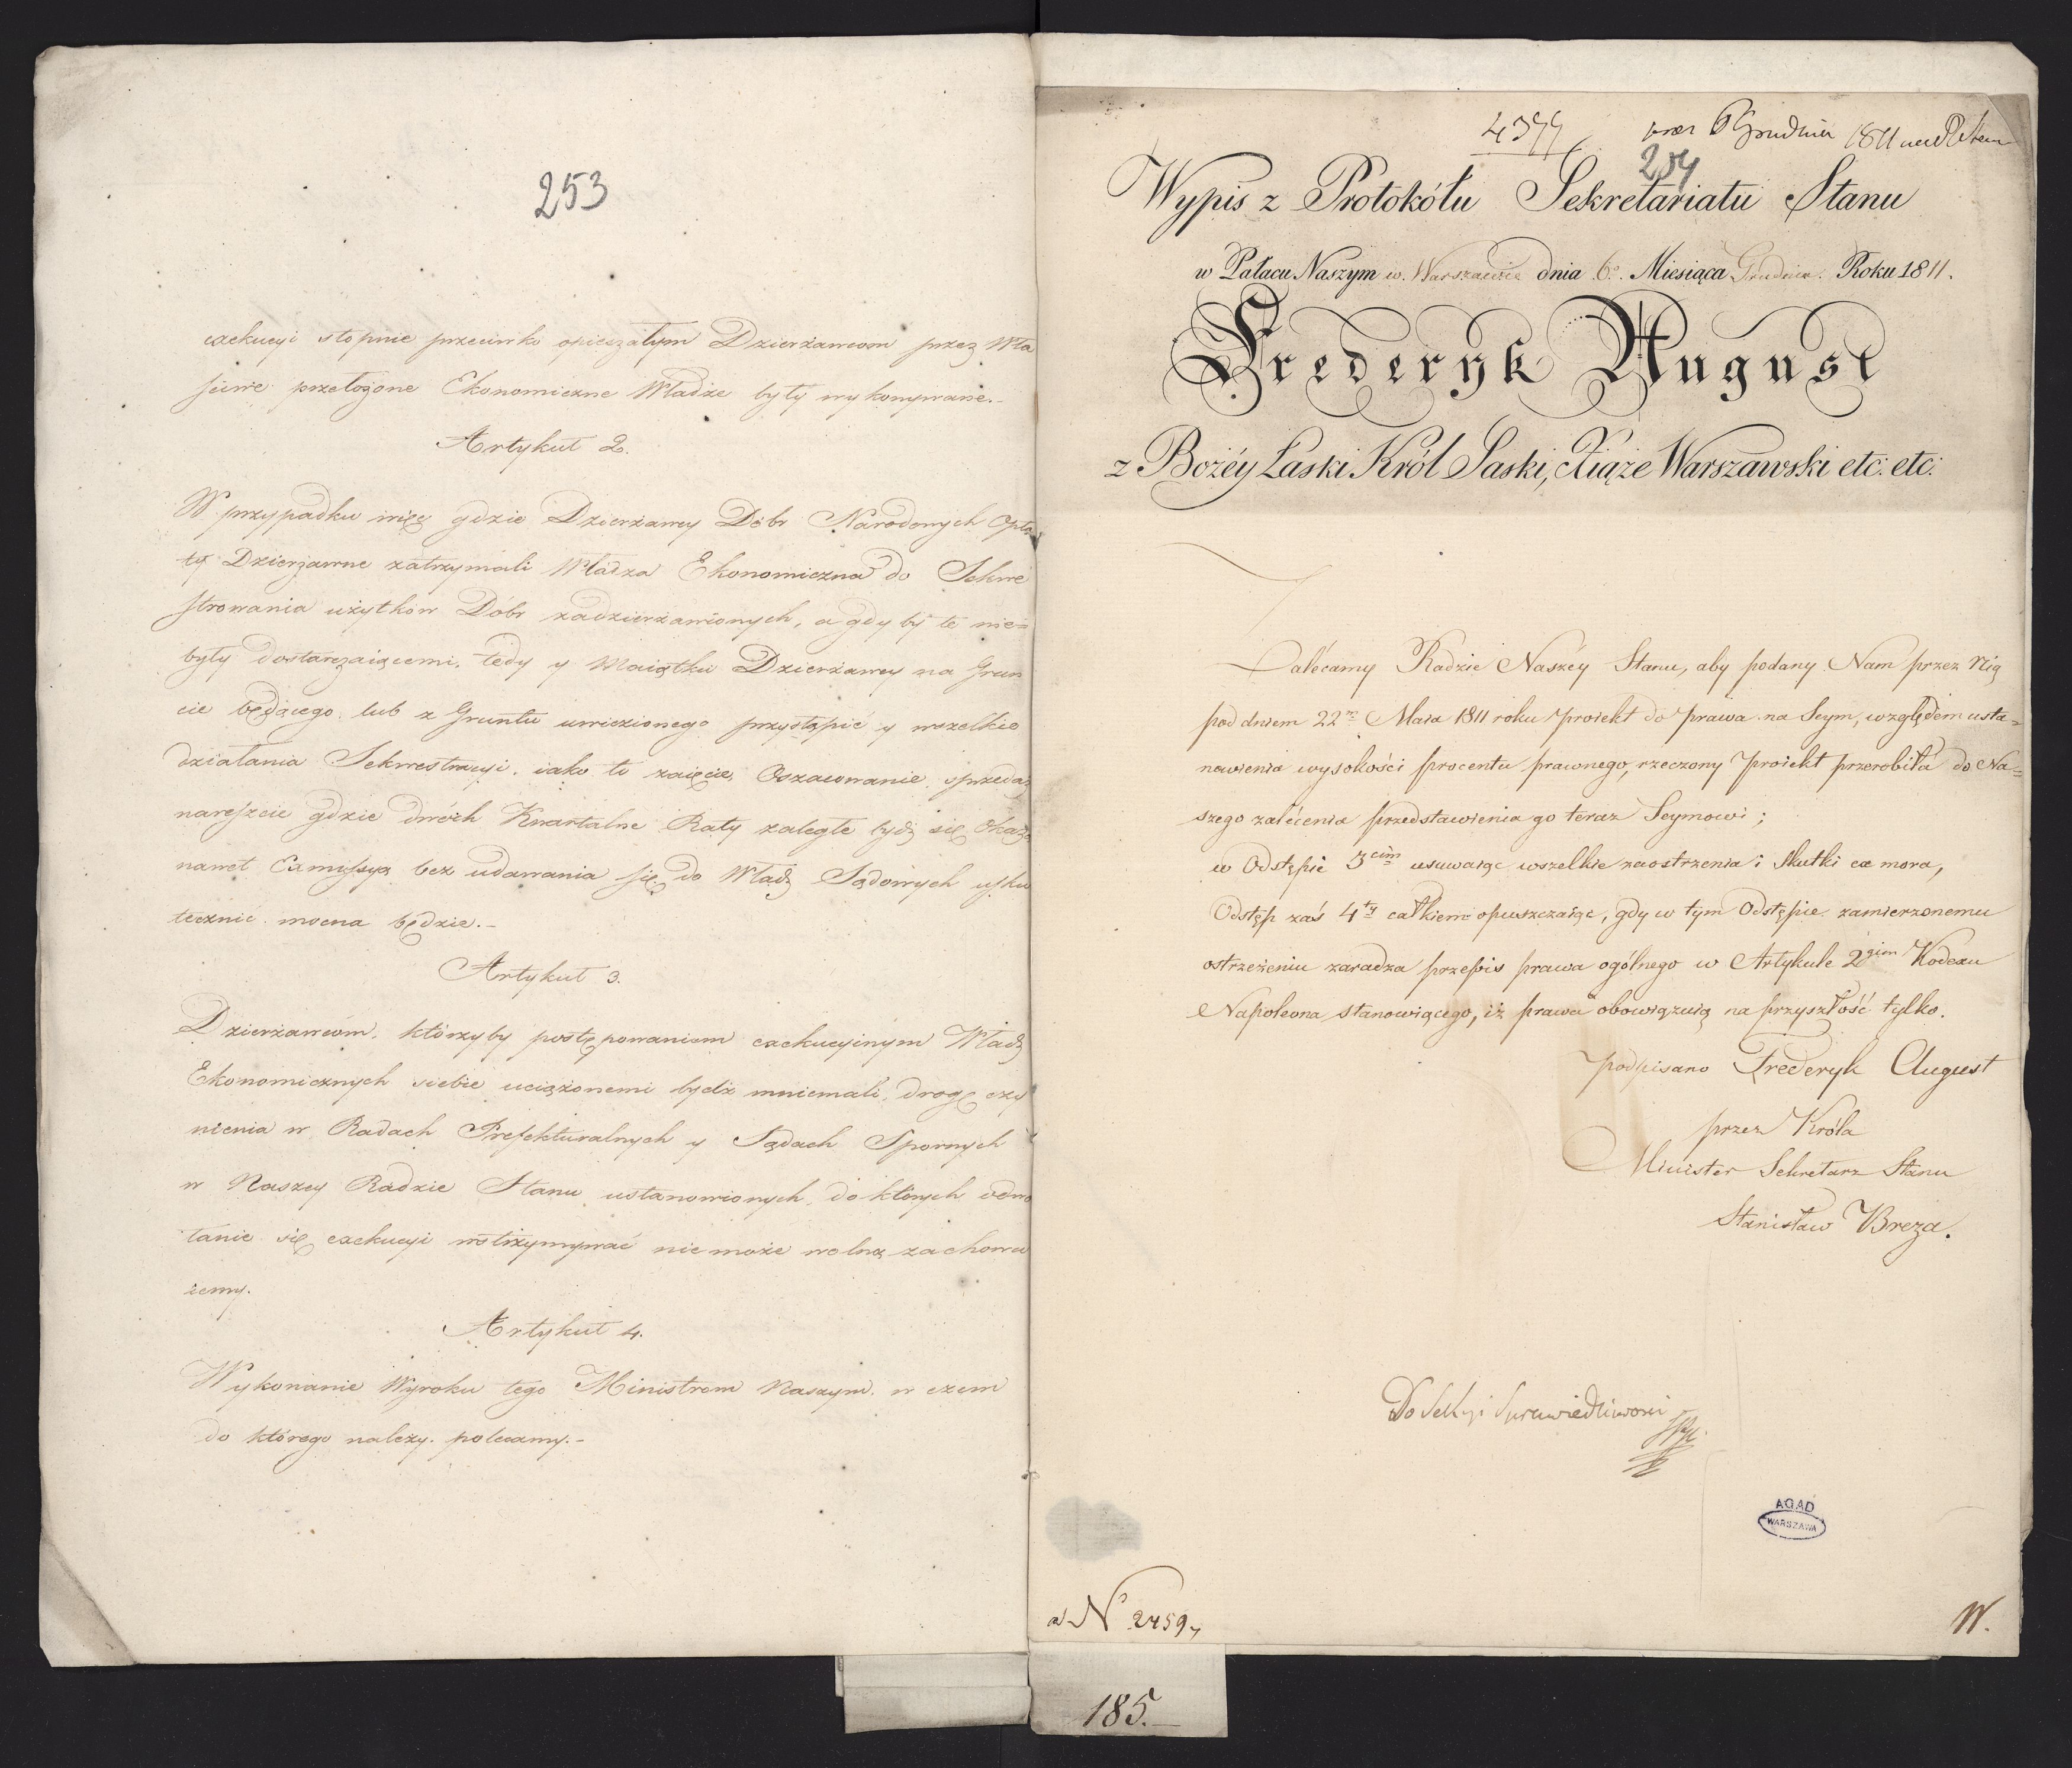 253
exekucyi stopnie przeciwko opieszałym Dzierżawcom przez Wła
sciwe przełożone Ekonomiczne Władze były wykonywane.-
Artykuł 2.
W przypadku więc gdzie Dzierżawcy Dóbr Narodowych Opła
ty Dzierżawne zatrzymali Władza Ekonomiczna do Sekwe
strowania użytków Dóbr zadzierżawionych, a gdy by te nie=
były dostarczaiącemi, tedy y Maiątku Dzierżawcy na Grun
cie będącego lub z Gruntu uwiezionego przystąpić y wszelkie
działania Sekwestracyi, iako to zaięcie, Oszacowanie, sprzedaż
nareszcie gdzie dwóch Kwartalne Raty zaległe bydź się okażą
nawet Exmissyą bez udawania się do Władz Sądowych usku
tecznić mocna będzie.-
Artykuł 3.
Dzierżawcom, którzy by postępowaniem exekucyinym Władz
Ekonomicznych siebie uciążonemi bydź mniemali, drogę czy
nienia w Radach Prefekturalnych y Sądach Spornych
w Naszey Radzie Stanu ustanowionych, do których odwo
łanie się exekucyi wstrzymywać nie może wolną zachowu
iemy.
Artykuł 4.
Wykonanie Wyroku tego Ministrom Naszym, w czem
do którego należy, polecamy.-
4377
6 Grudnia 1811
204
Wypis z Protokółu Sekretariatu Stanu
w Pałacu Naszym w Warszawie dnia 6o. Miesiąca Grudnia. Roku 1811.
Frederyk August
z Bożéy Łaski Król Saski, Xiąże Warszawski etc: etc:
Zalécamy Radzie Naszéy Stanu, aby podany Nam przez Nią
pod dniem 22m Maia 1811 roku Proiekt do Prawa na Seym, względem usta=
nowienia wysokości procentu prawnego, rzeczony Proiekt przerobiła do Na=
szego zalécenia przedstawienia go teraz Seymowi;
w Odstępie 3cim usuwaiąc wszelkie zaostrzenia i skutki ex mora,
Odstęp zaś 4ty całkiem opuszczaiąc, gdy w tym Odstępie zamierzonemu
ostrzeżeniu zaradza przepis prawa ogólnego w Artykule 2gim Kodexu
Napoleona stanowiącego, iż prawa obowiązuią na przyszłość tylko.
Podpisano Frederyk August
przez Króla
Minister Sekretarz Stanu
Stanisław Breza.
Do Sekcyi Sprawiedliwosci
AGAD
WARSZAWA
a N 2459
W.
185.-